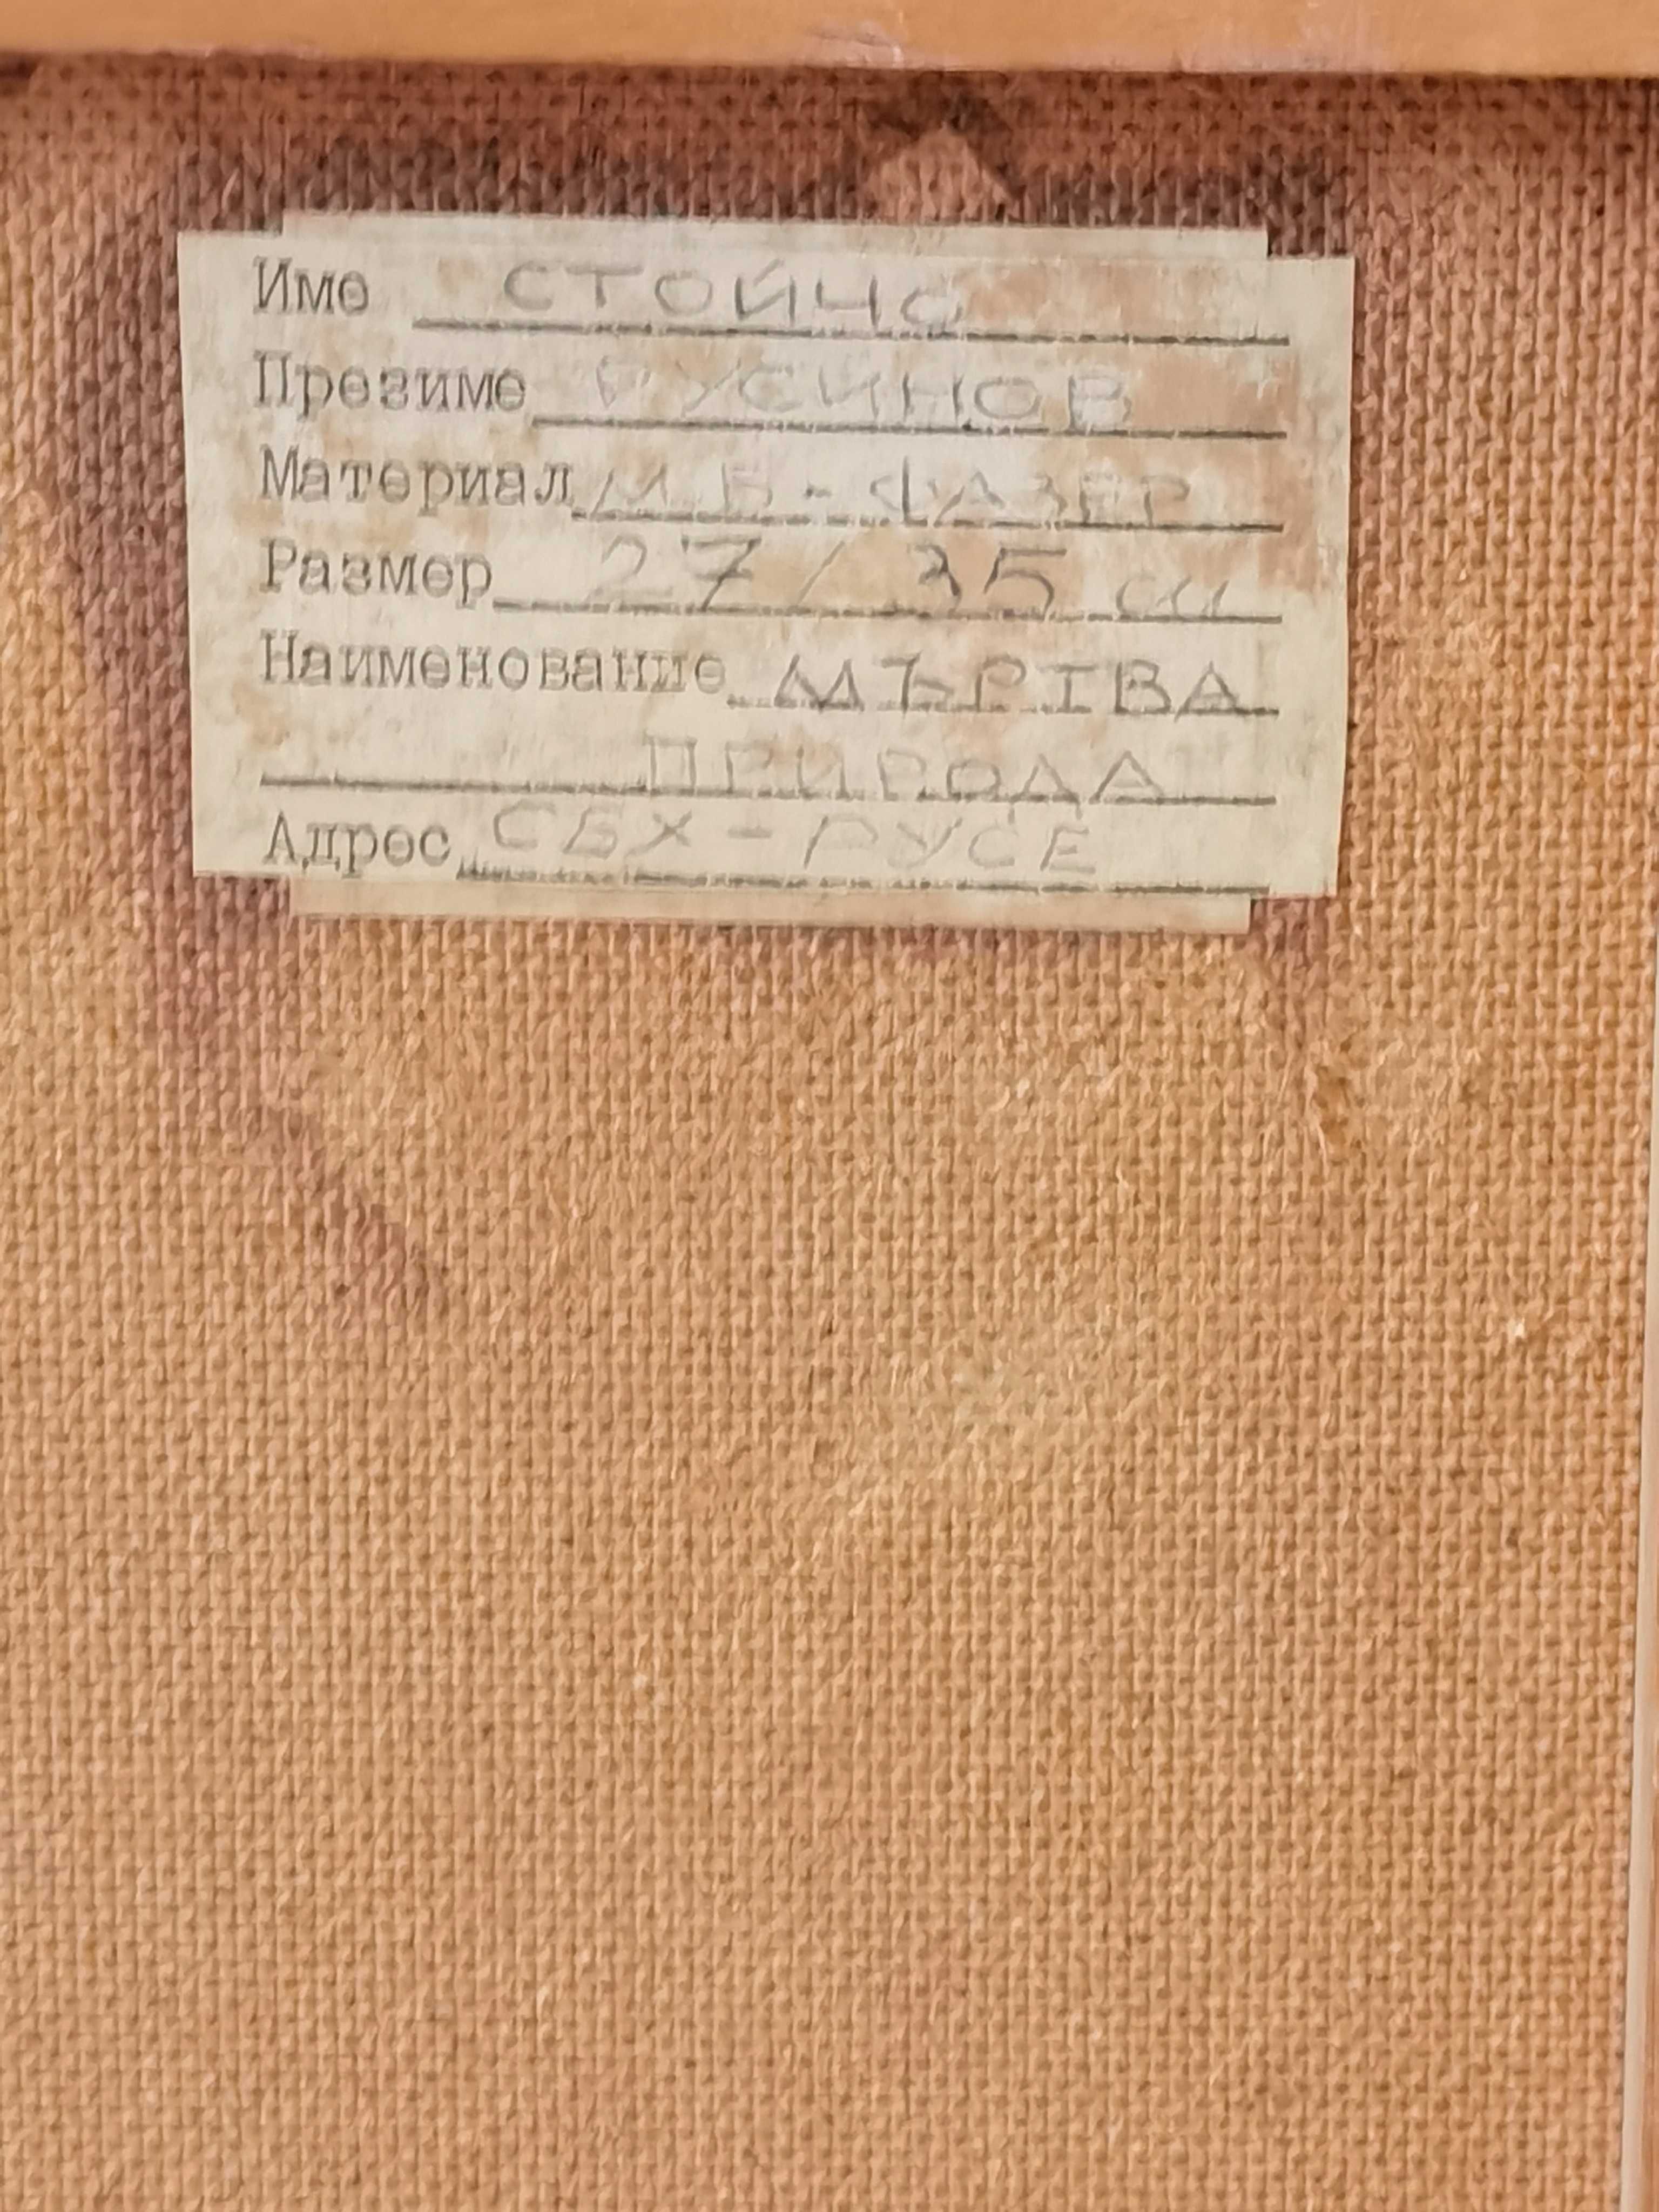 Име СТОЙЧО
Презиме РУСИНОВ
Материал М.Б-ФАЗЕР
Размер 27/35 см
Наименование МЪРТВА
ПРИРОДА
Адрес СБХ-РУСЕ